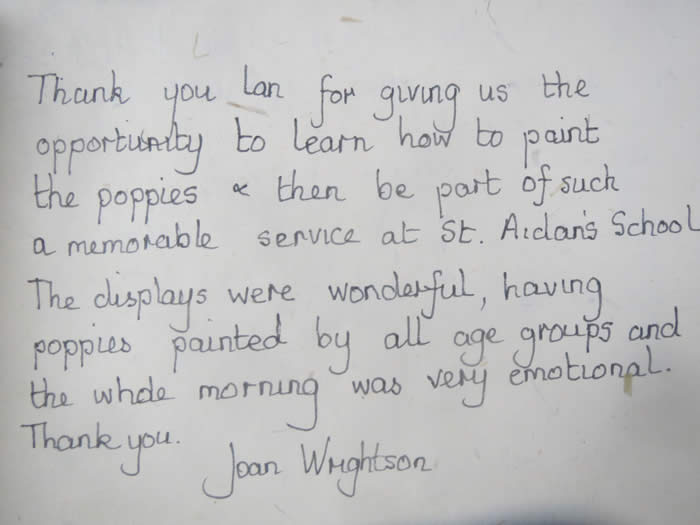 Thank you Lan for giving us the
opportunity to learn how to paint
the poppies & then be part of such
a memorable service at St. Aidan's School
The displays were wonderful, having
poppies painted by all age groups and
the whole morning was very emotional.
Thank you.
Joan Wrightson